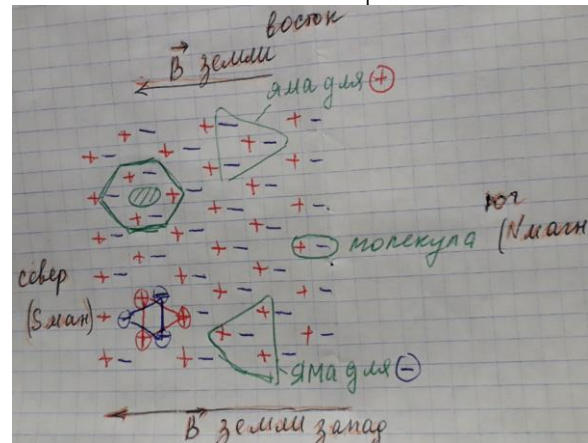 восток
B земли
яма для +
юг
молекула (N магн
север
(S ман)
яма для −
B земли запад